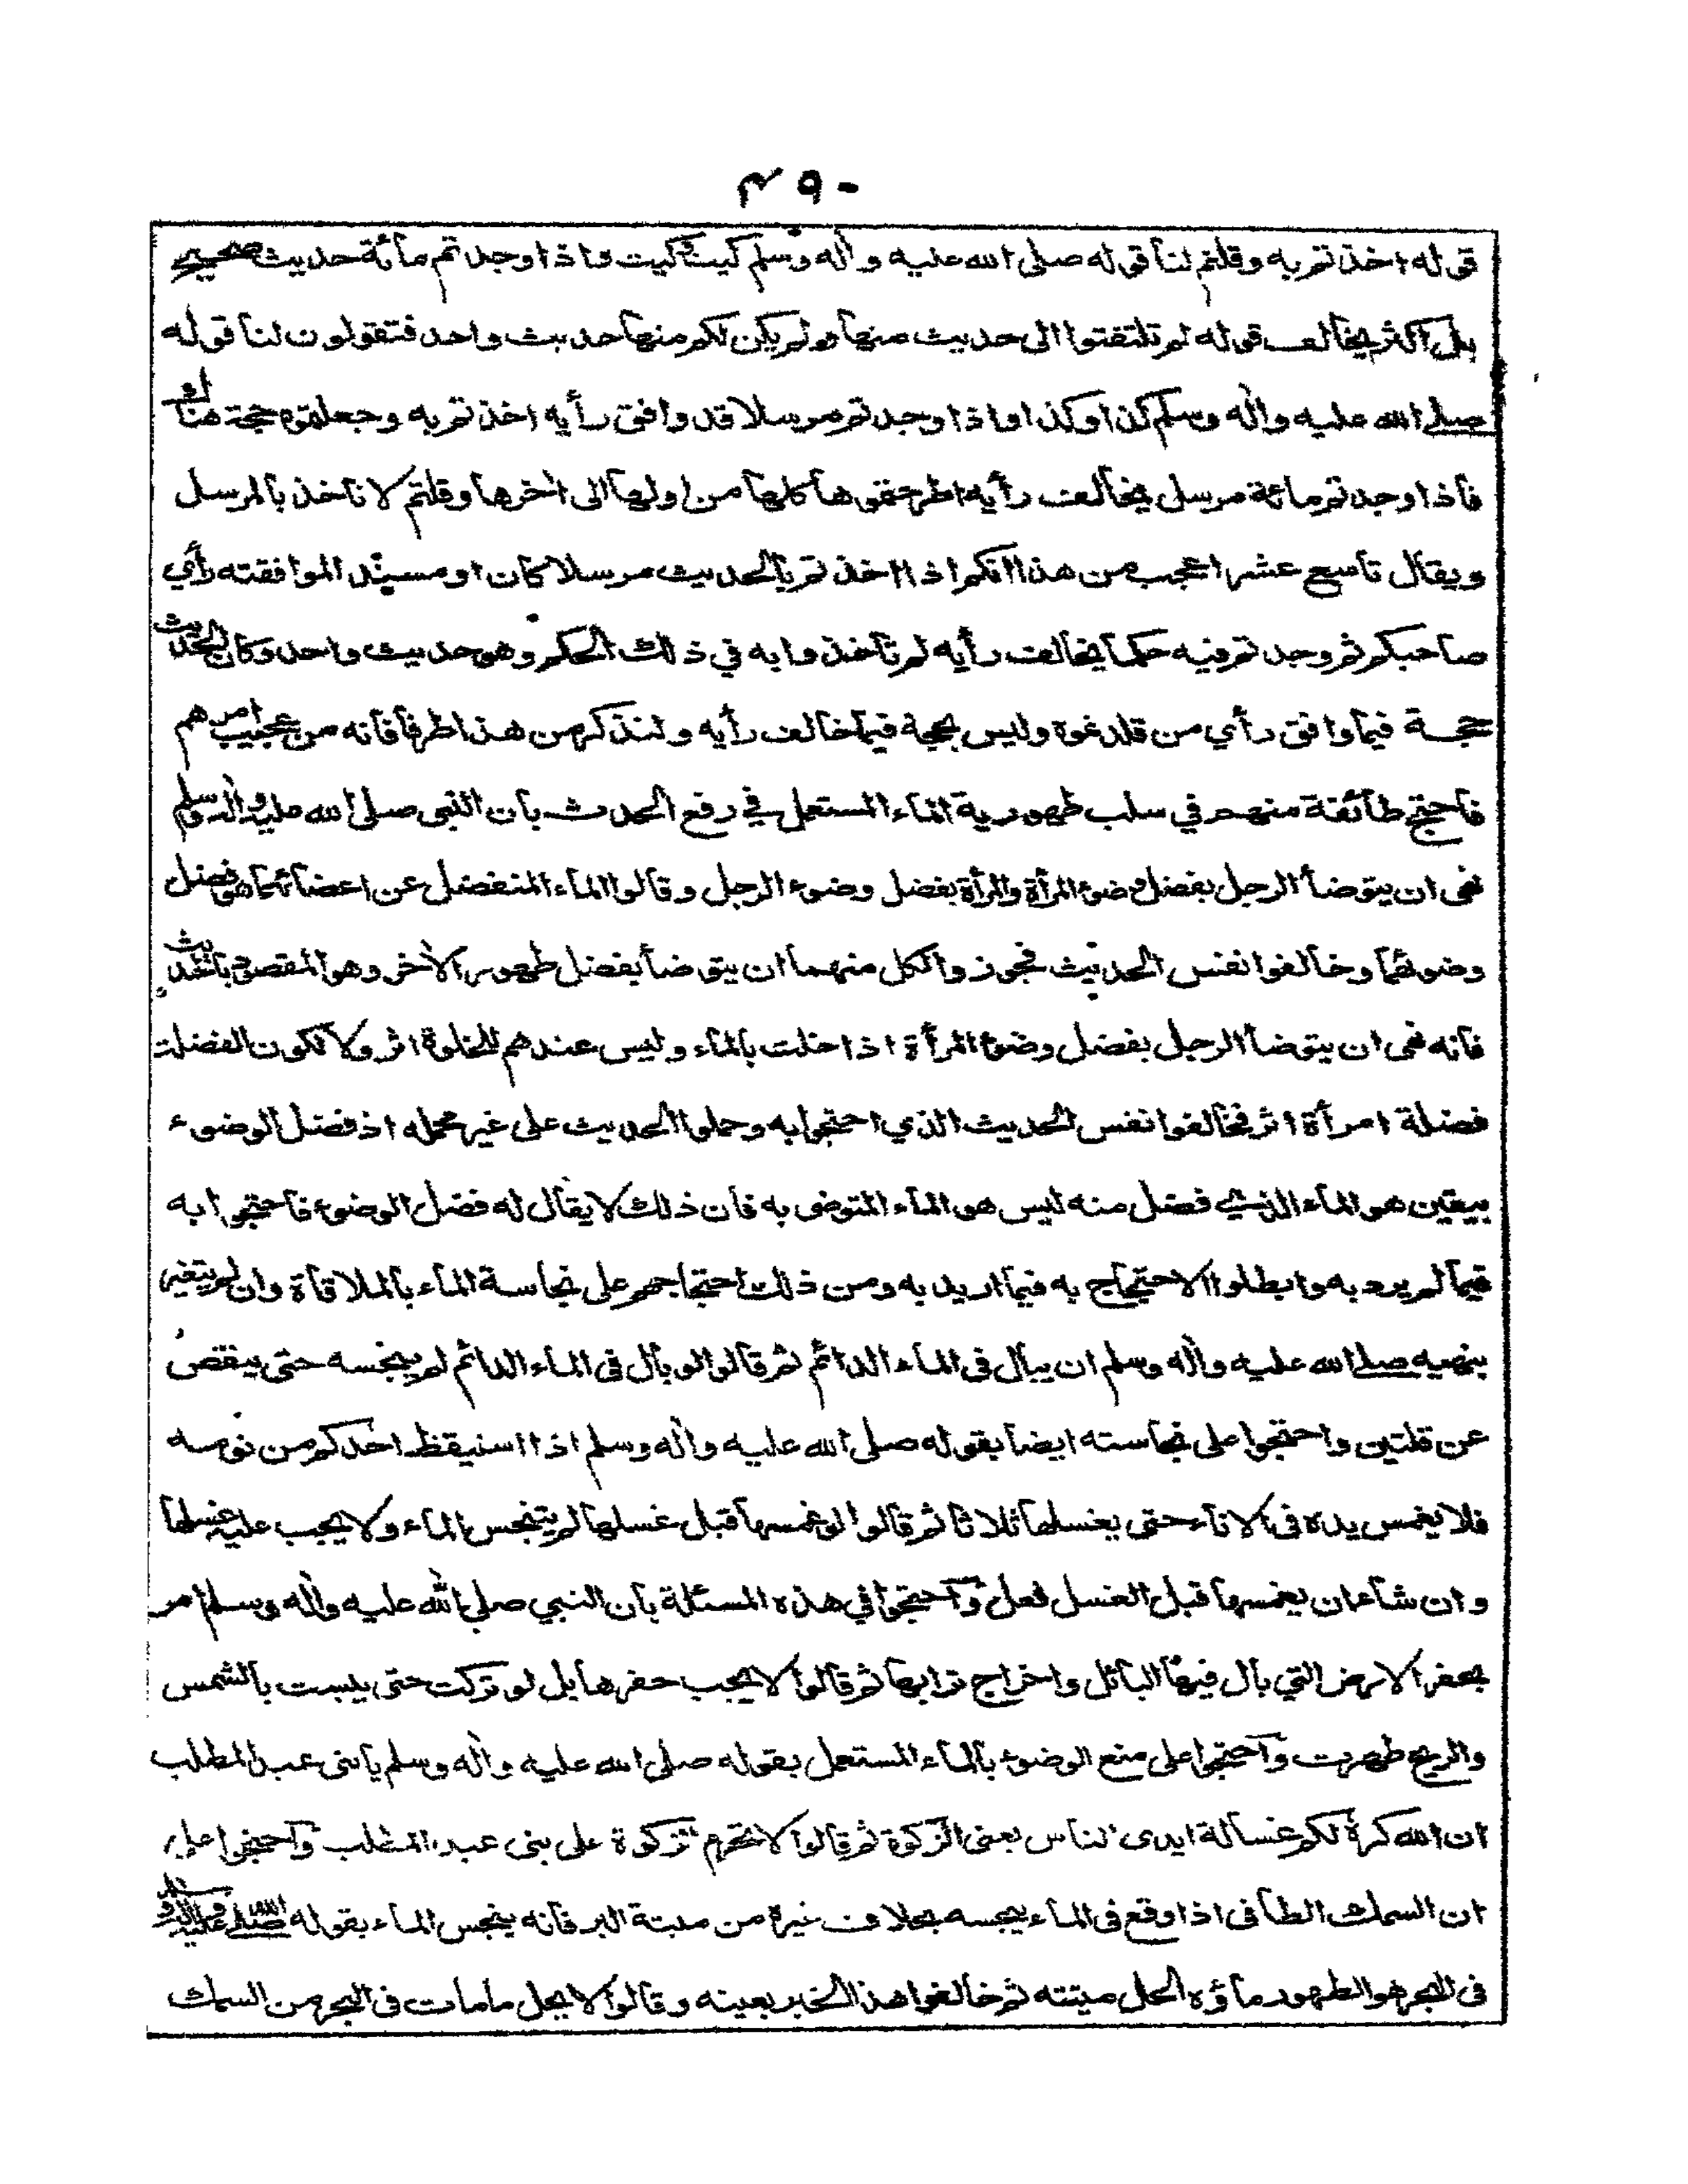 ٤٩٠
قوله اخذتم به وقلتم لنا قوله صلى الله عليه وآله وسلم كيت كيت فاذا وجدتم مائة حديث صحيح
بل اكثر يخالف قوله لم تلتفتوا الى حديث منها ولم يكن لكم منها حديث واحد فتقولون لنا قوله
صلى الله عليه وآله وسلم كذا وكذا واذا وجدتم مرسلا قد وافق رأيه اخذتم به وجعلتموه حجة هناك
فاذا وجدتم مائة مرسل يخالف رأيه اطرحتموها كلها من اولها الى آخرها وقلتم لا ناخذ بالمرسل
ويقال تاسع عشر اعجب من هذا انكم اذا اخذتم بالحديث مرسلا كان او مسندا لموافقته رأي
صاحبكم ثم وجدتم فيه حكما يخالف رأيه لم تاخذوا به في ذلك الحكم وهو حديث واحد وكان الحديث
حجة فيما وافق رأي من قلدتموه وليس بحجة فيما خالف رأيه ولنذكر من هذا طرفا فانه من عجيب امرهم
فاحتج طائفة منهم في سلب طهورية الماء المستعمل في رفع الحدث بان النبي صلى الله عليه وآله وسلم
نهى ان يتوضأ الرجل بفضل وضوء المرأة والمرأة بفضل وضوء الرجل وقالوا الماء المنفصل عن اعضائهما هو فضل
وضوئهما وخالفوا نفس الحديث فجوزوا لكل منهما ان يتوضأ بفضل طهور الآخر وهو المقصود بالحديث
فانه نهى ان يتوضأ الرجل بفضل وضوء المرأة اذا خلت بالماء وليس عندهم للخلوة اثر ولا لكون الفضلة
فضلة امرأة اثر فخالفوا نفس الحديث الذي احتجوا به وحملوا الحديث على غير محمله اذ فضل الوضوء
بيقين هو الماء الذي فضل منه ليس هو الماء المتوضى به فان ذلك لا يقال له فضل الوضوء فاحتجوا به
فيما لم يرد به وابطلوا الاحتجاج به فيما اريد به ومن ذلك احتجاجهم على نجاسة الماء بالملاقاة وان لم يتغير
بنهيه صلى الله عليه وآله وسلم ان يبال في الماء الدائم ثم قالوا لو بال في الماء الدائم لم ينجسه حتى ينقص
عن قلتين واحتجوا على نجاسته ايضا بقوله صلى الله عليه وآله وسلم اذا استيقظ احدكم من نومه
فلا يغمس يده في الاناء حتى يغسلها ثلاثا ثم قالوا لو غمسها قبل غسلها لم يتنجس الماء ولا يجب عليه غسلها
وان شاء ان يغمسها قبل الغسل فعل واحتجوا في هذه المسئلة بان النبي صلى الله عليه وآله وسلم امر
بحفر الارض التي بال فيها البائل واخراج ترابها ثم قالوا لا يجب حفرها بل لو تركت حتى يبست بالشمس
والريح طهرت واحتجوا على منع الوضوء بالماء المستعمل بقوله صلى الله عليه وآله وسلم يا بنى عبد المطلب
ان الله كره لكم غسالة ايدى الناس يعنى الزكوة ثم قالوا لا تحرم الزكوة على بنى عبد المطلب واحتجوا على
ان السمك الطافى اذا وقع في الماء ينجسه بخلاف غيره من ميتة البر فانه ينجس الماء بقوله صلى الله عليه وآله وسلم
فى البحر هو الطهور ماؤه الحل ميتته ثم خالفوا هذا الخبر بعينه وقالوا لا يحل ما مات في البحر من السمك